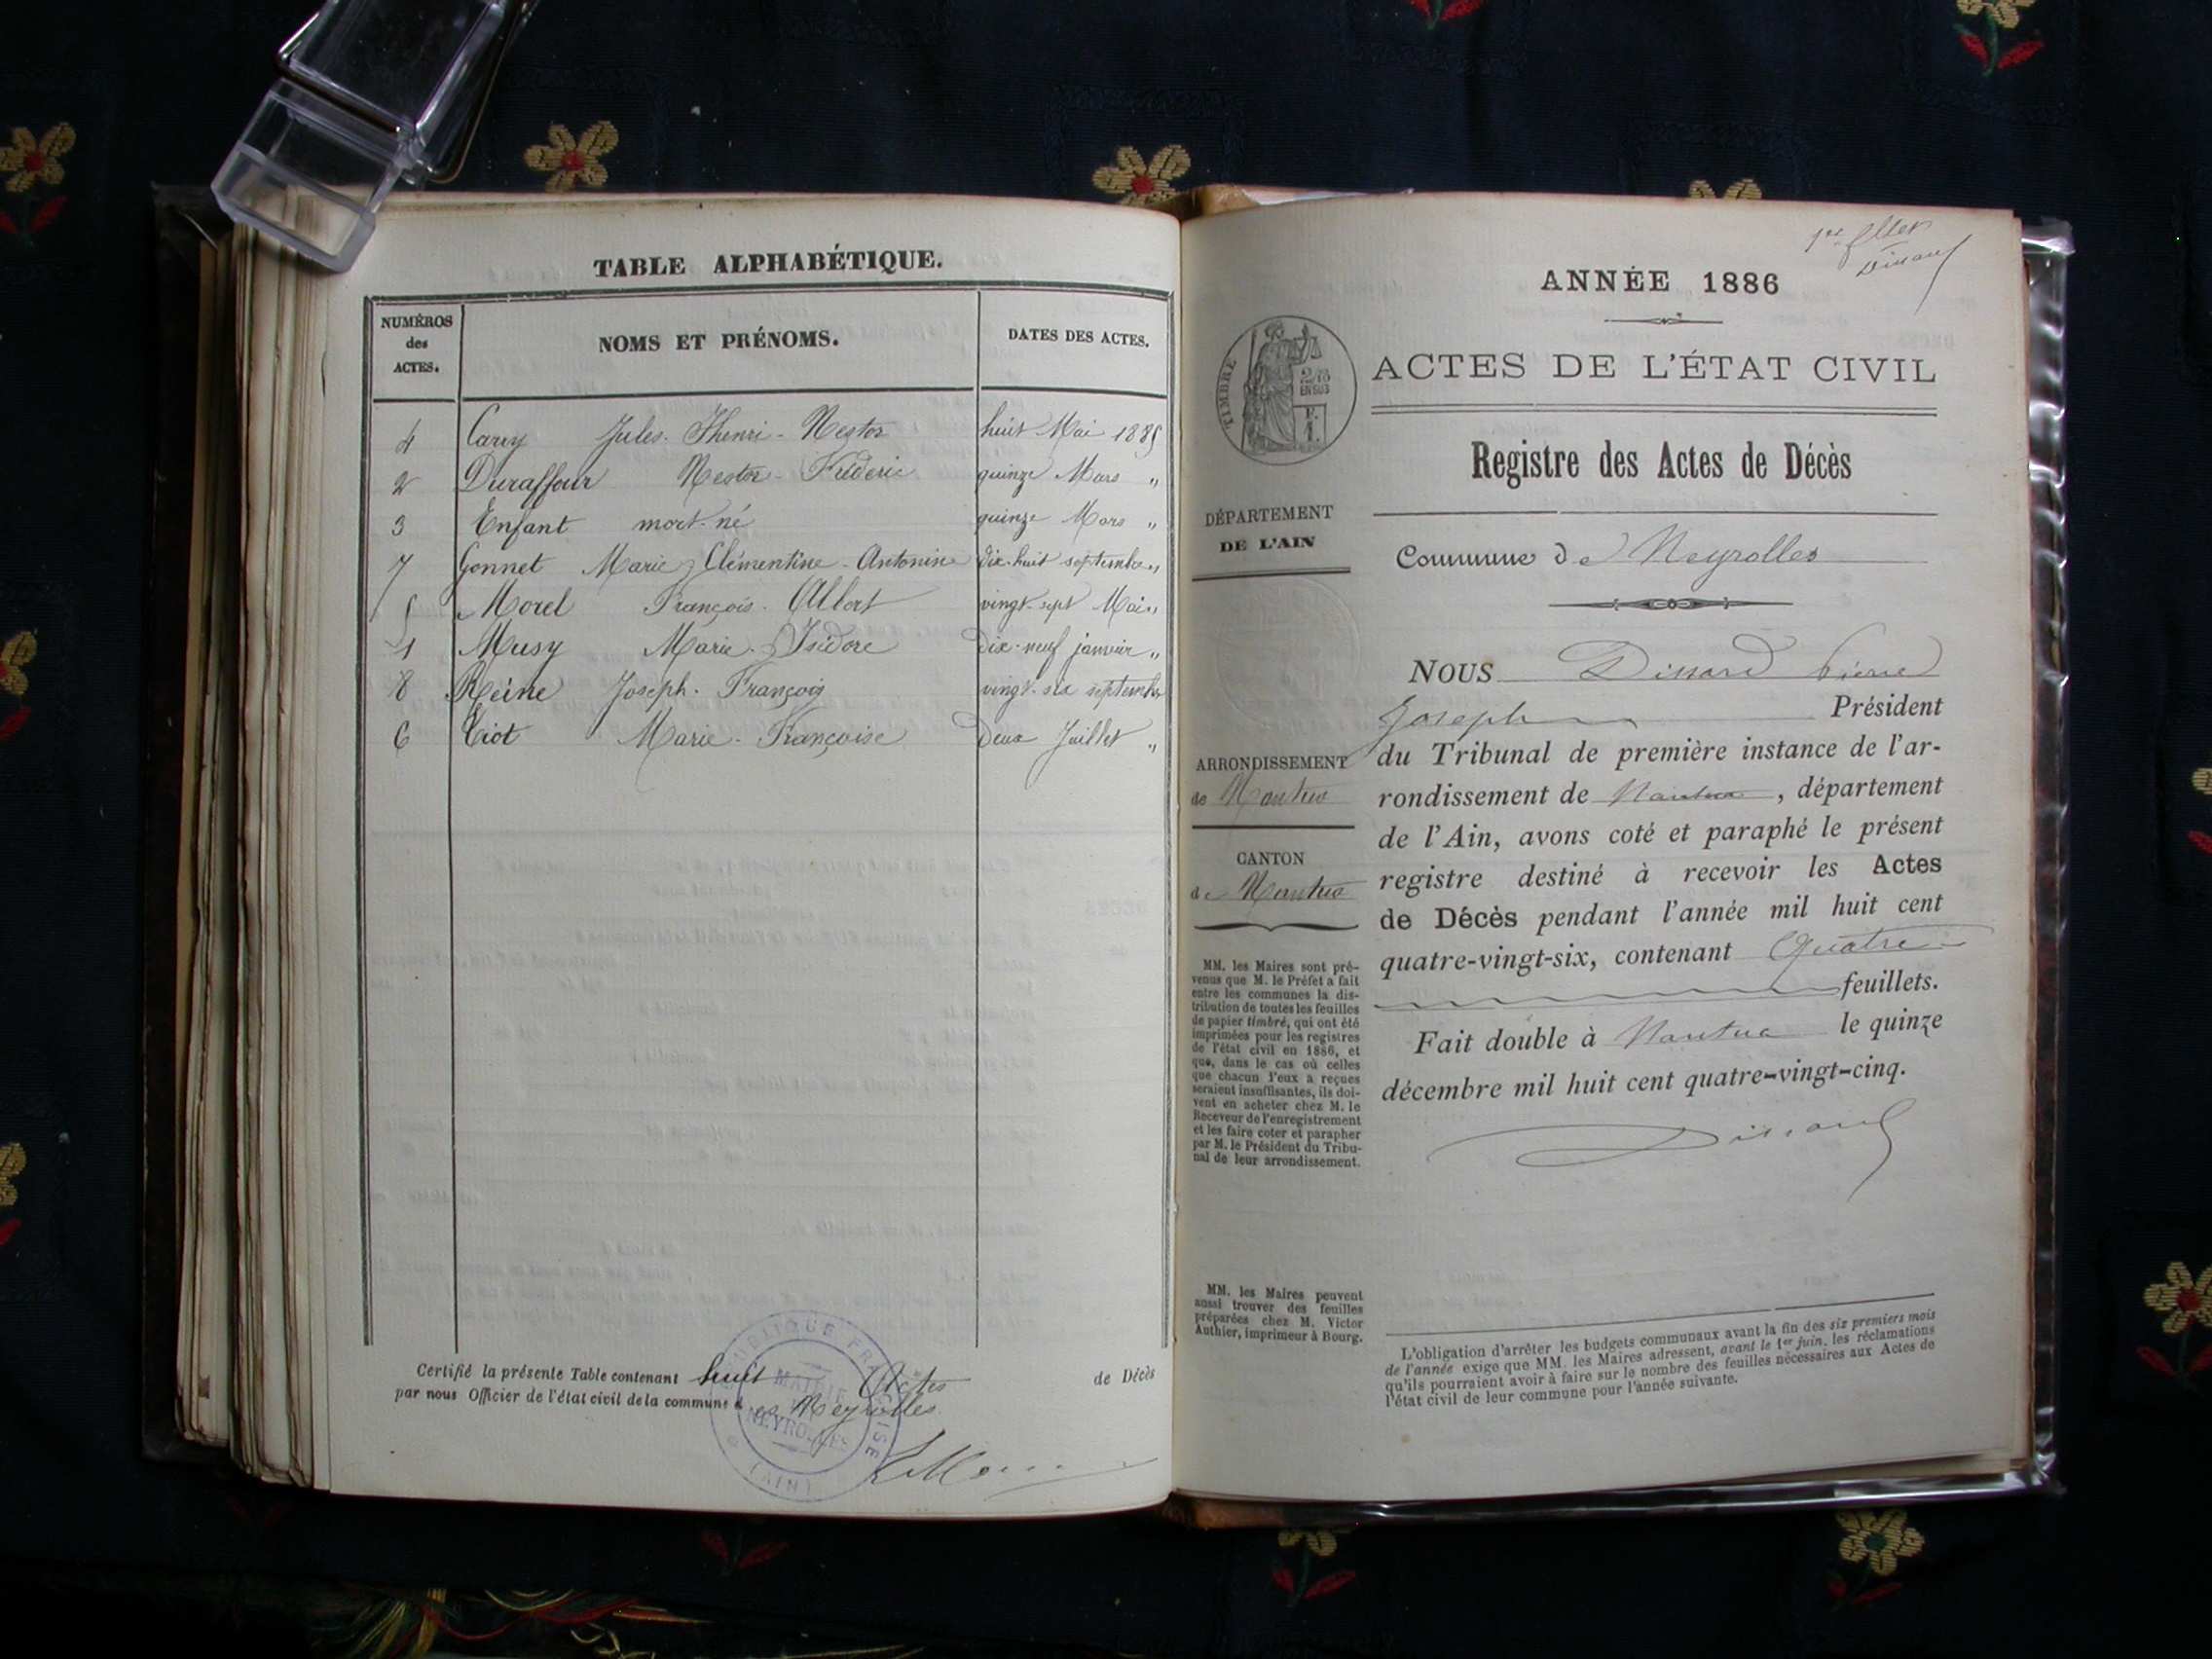 TABLE ALPHABÉTIQUE.
NUMÉROS
des
ACTES.
NOMS ET PRÉNOMS.
DATES DES ACTES.
4 Jules-Henri-Nestor huit Mai 1885
2 Duraffour Nestor-Frédéric quinze Mars "
3 Enfant mort-né quinze Mars "
7 Gonnet Marie-Clémentine-Antonine dix-huit septembre "
5 Morel François-Albert vingt-sept Mai "
1 Musy Marie-Isidore dix-neuf janvier "
8 Reine Joseph-François vingt-six septembre
6 Marie-Françoise deux Juillet "
Certifié la présente Table contenant huit Actes de Décès
par nous Officier de l'état civil de la commune des Neyrolles
RÉPUBLIQUE FRANÇAISE
MAIRIE
NEYROLLES
(AIN)
1er fllet
Dissard
ANNÉE 1886
ACTES DE L'ÉTAT CIVIL
TIMBRE
2/10
EN SUS
Registre des Actes de Décès
DÉPARTEMENT
DE L'AIN
Commune de Neyrolles
NOUS Dissard Pierre
Joseph Président
du Tribunal de première instance de l'ar-
rondissement de Nantua, département
de l'Ain, avons coté et paraphé le présent
registre destiné à recevoir les Actes
de Décès pendant l'année mil huit cent
quatre-vingt-six, contenant Quatre
feuillets.
Fait double à Nantua le quinze
décembre mil huit cent quatre-vingt-cinq.
Dissard
ARRONDISSEMENT
de Nantua
CANTON
de Nantua
MM. les Maires sont pré-
venus que M. le Préfet a fait
entre les communes la dis-
tribution de toutes les feuilles
de papier timbré, qui ont été
imprimées pour les registres
de l'état civil en 1886, et
que, dans le cas où celles
que chacun d'eux a reçues
seraient insuffisantes, ils doi-
vent en acheter chez M. le
Receveur de l'enregistrement
et les faire coter et parapher
par M. le Président du Tribu-
nal de leur arrondissement.
MM. les Maires peuvent
aussi trouver des feuilles
préparées chez M. Victor
Authier, imprimeur à Bourg.
L'obligation d'arrêter les budgets communaux avant la fin des six premiers mois
de l'année exige que MM. les Maires adressent, avant le 1er juin, les réclamations
qu'ils pourraient avoir à faire sur le nombre des feuilles nécessaires aux Actes de
l'état civil de leur commune pour l'année suivante.